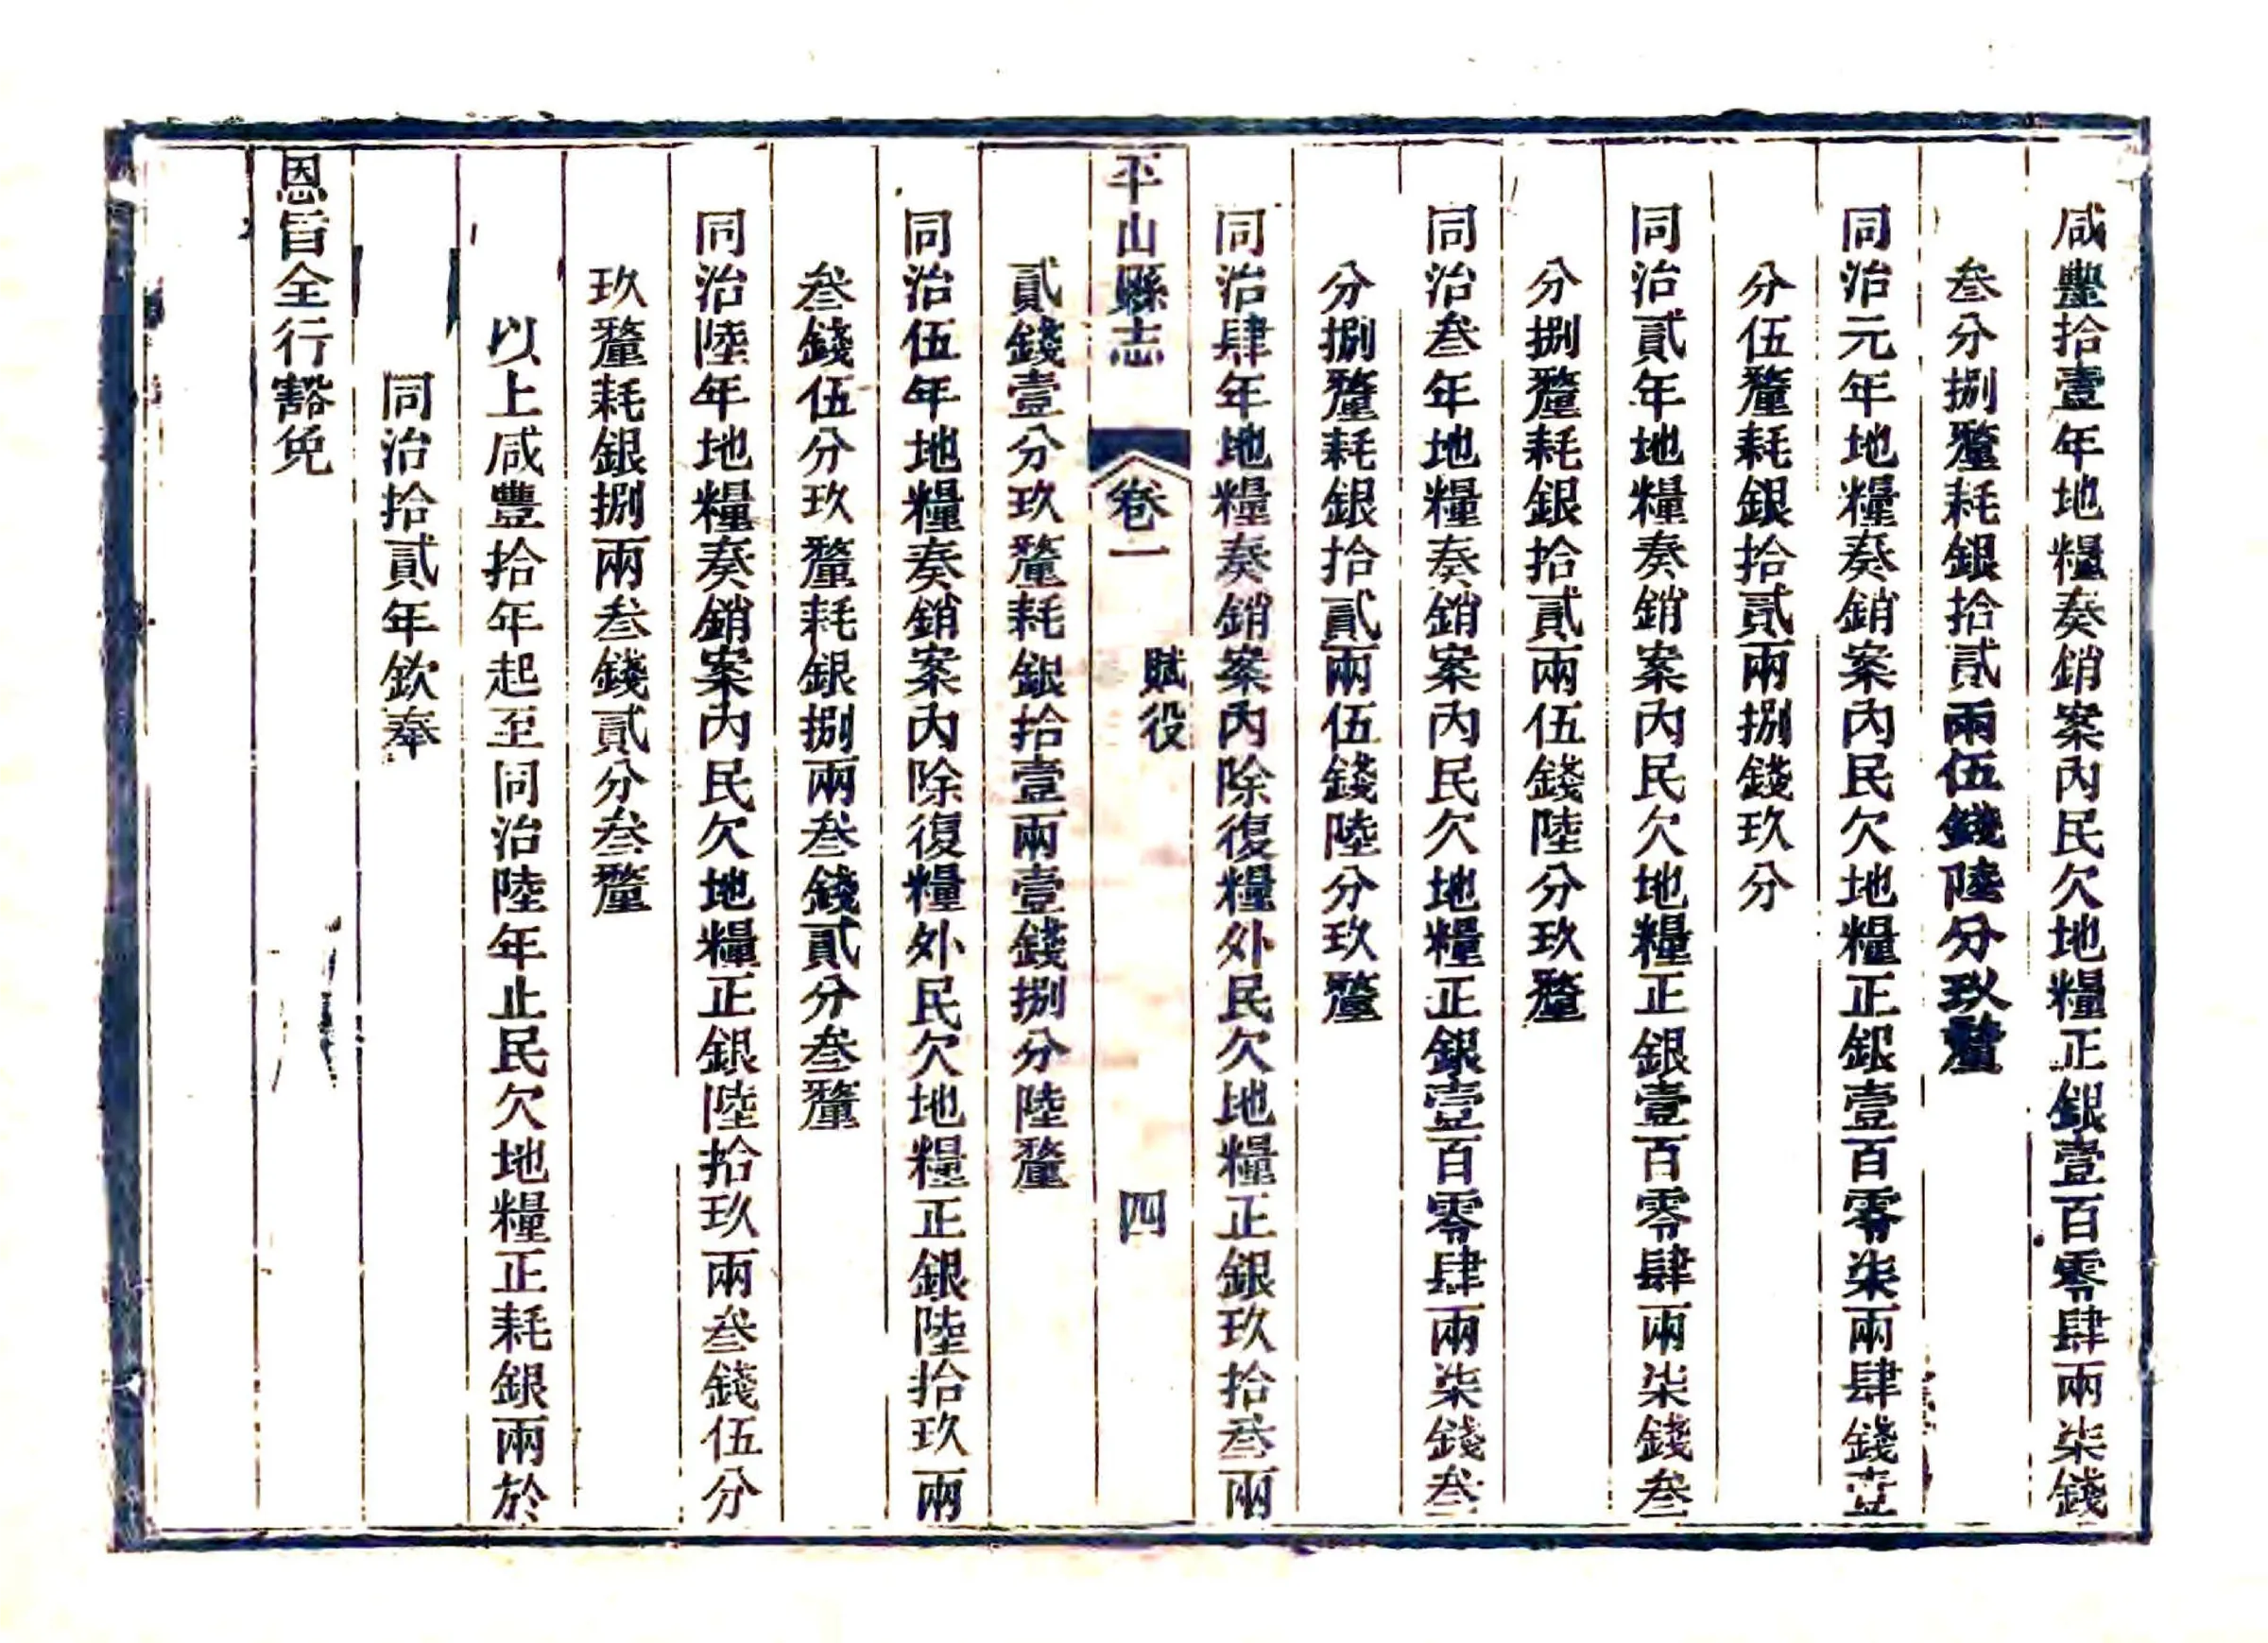 咸豐拾壹年地糧奏銷案內民欠地糧正銀壹百零肆兩柒錢
叁分捌釐耗銀拾貳兩伍錢陸分玖釐
同治元年地糧奏銷案內民欠地糧正銀壹百零柒兩肆錢壹
分伍釐耗銀拾貳兩捌錢玖分
同治貳年地糧奏銷案內民欠地糧正銀壹百零肆兩柒錢叁
分捌釐耗銀拾貳兩伍錢陸分玖釐
同治叁年地糧奏銷案內民欠地糧正銀壹百零肆兩柒錢叁
分捌釐耗銀拾貳兩伍錢陸分玖釐
同治肆年地糧奏銷案內除復糧外民欠地糧正銀玖拾叁兩
平山縣志 卷一 賦役 四
貳錢壹分玖釐耗銀拾壹兩壹錢捌分陸釐
同治伍年地糧奏銷案內除復糧外民欠地糧正銀陸拾玖兩
叁錢伍分玖釐耗銀捌兩叁錢貳分叁釐
同治陸年地糧奏銷案內民欠地糧正銀陸拾玖兩叁錢伍分
玖釐耗銀捌兩叁錢貳分叁釐
以上咸豐拾年起至同治陸年止民欠地糧正耗銀兩於
同治拾貳年欽奉
恩旨全行豁免